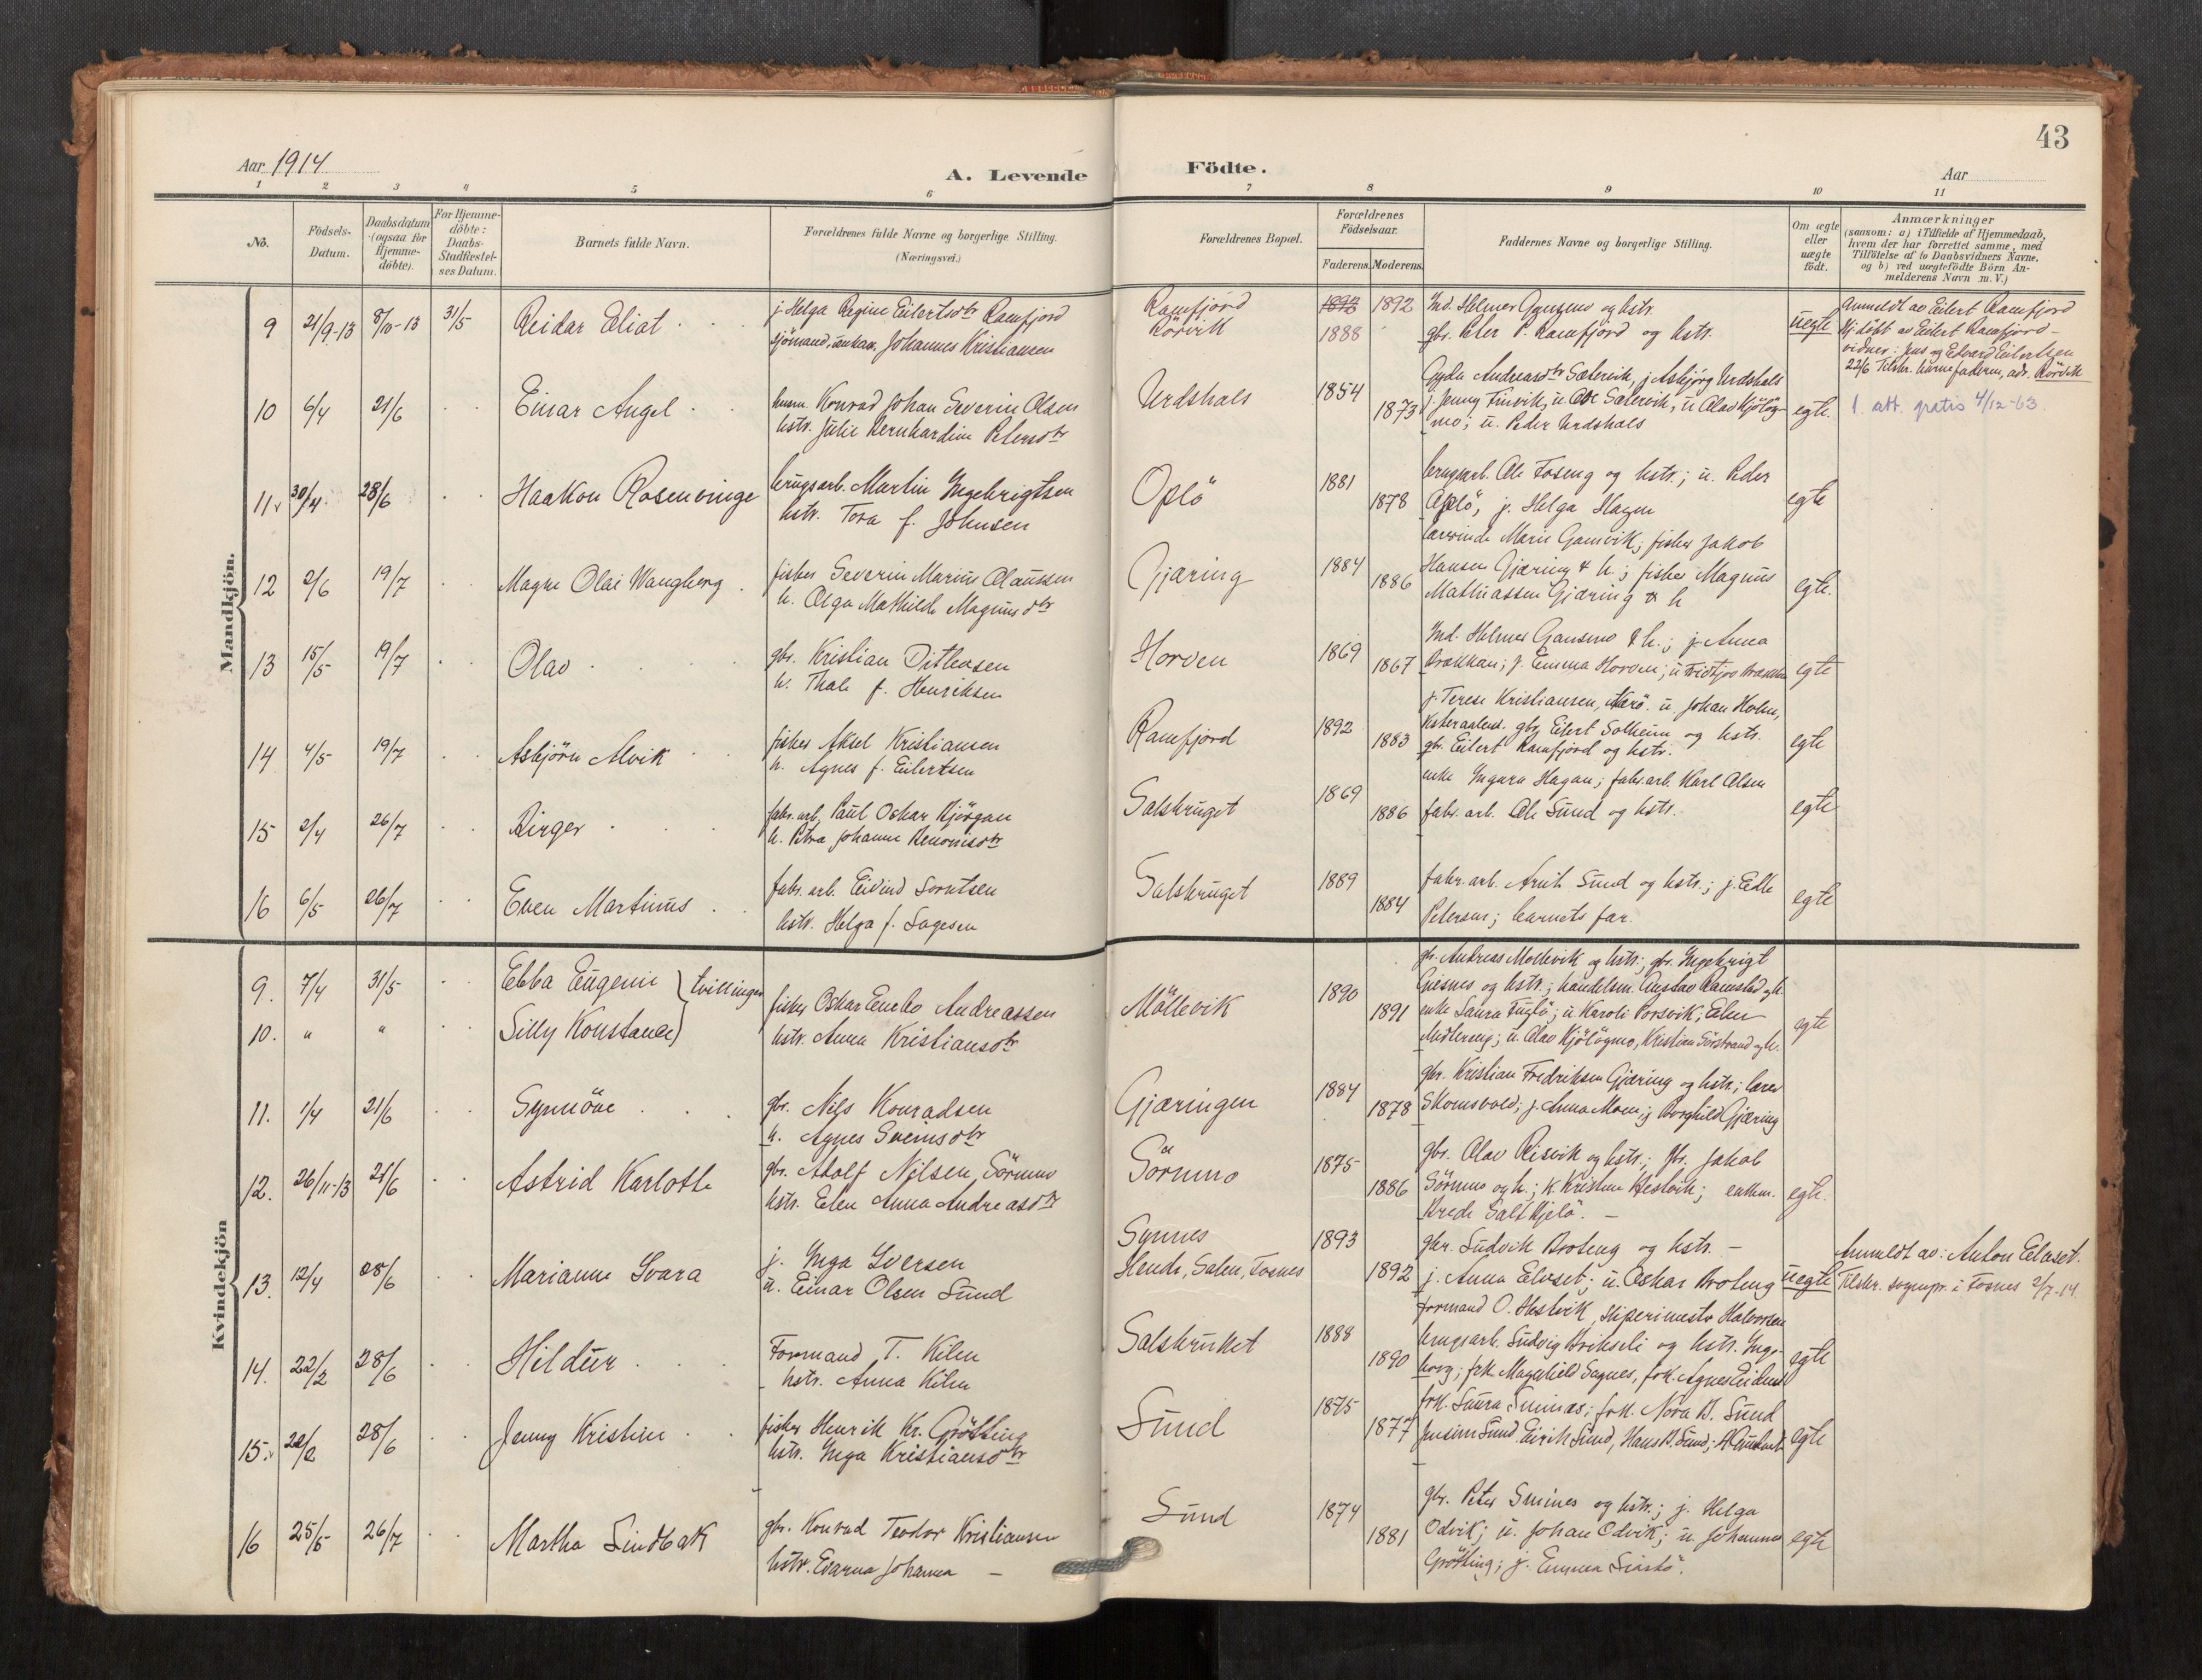 43
Aar 1914
A. Levende Födte.
Aar
1 2 3 4 5 6 7 8 9 10 11
No.
Födsels-Datum.
Daabsdatum (ogsaa for Hjemme-döbte).
For Hjemme-döbte: Daabs-Stadfæstel-ses Datum.
Barnets fulde Navn.
Forældrenes fulde Navne og borgerlige Stilling.
(Næringsvei.)
Forældrenes Bopæl.
Forældrenes Födselsaar.
Faderens. Moderens.
Faddernes Navne og borgerlige Stilling.
Om ægte eller uægte födt.
Anmærkninger
(saasom: a) i Tilfælde af Hjemmedaab,
hvem der har forrettet samme, med
Tilföielse af to Daabsvidners Navne.
og b) ved uægtefödte Börn An-
melderens Navn m. V.)
Mandkjön.
9 21/9-13 8/10-13 31/5 Reidar Eliot
j. Helga Regine Eilertsdtr Ramfjord
sjömand, unkar. Johannes Kristiansen
Ramfjord
Rörvik
1892
1888
Ind. Helmer Gansmo og hstr.
gbr. Peter P. Ramfjord og hstr.
uegte
Anmeldt av Eilert Ramfjord
Hj. döbt av Eilert Ramfjord -
vidner: Jens og Edvard Eilertsen
22/6 Tilskr. barnefaderen, adr. Rörvik
10 6/4 21/6 Einar Angel
husm. Konrad Johan Severin Olsen
hstr. Julie Bernhardine Petersdtr
Urdshals 1854 1873
Gyda Andreasdtr Sætervik, j. Asbjørg Urdshals
j. Jenny Finvik, u. Ole Sætervik, u. Olav Kjölög-
mo; u. Peder Urdshals
egte.
1. att. gratis 4/12-63.
11 30/4 28/6 Haakon Rosenvinge
brugsarb. Martin Ingebrigtsen
hstr. Tora f. Johnsen
Oplö 1881 1878
brugsarb. Ole Foseng og hstr.; u. Peder
Oplö, j. Helga Hagen
egte
12 2/6 19/7 Magne Olai Wangberg
fisker Severin Marius Olaussen
h. Olga Mathilde Magnusdtr
Gjæring 1884 1886
Marie Gansvik; fisker Jakob
Hansen Gjæring & h.; fisker Magnus
Mathiassen Gjæring & h
egte.
13 15/5 19/7 Olav
gbr. Kristian Ditlevsen
h. Thale f. Henriksen
Horven 1869 1867
Ind. Helmer Gansmo & h.; j. Anna
Brækkan; j. Emma Horven; u. Fridtjov Brækkan
egte
14 4/5 19/7 Asbjörn Alvik
fisker Aksel Kristiansen
h. Agnes f. Eilertsen
Ramfjord 1892 1883
j. Terese Kristiansen, u. Johan Holm,
gbr. Eilert Solheim og hstr.
gbr. Eilert Ramfjord og hstr.
egte
15 2/4 26/7 Birger
fabr. arb. Paul Oskar Kjörgan
h. Petra Johanne Benonisdtr
Salsbruget 1869 1886
enke Hagan; fabr. arb. Karl Olsen
fabr. arb. Ole Sund og hstr.
egte
16 6/5 26/7 Even Martinus
fabr. arb. Eivind Sorntsen
hstr. Helga f. Sagesen
Salsbruget 1889 1884
fabr. arb. Arnt Sund og hstr.; j. Edle
Petersen; barnets far.
egte
Kvindekjön
9. 7/4 31/5 Ebba Eugenie
10. " " Silly Konstance
tvillinger
fisker Oskar Enebo Andreassen
hstr. Anna Kristiansdtr
Möllevik 1890 1891
gbr. Andreas Mollevik og hstr.; gbr. Ingebrigt
Gjesnes og hstr.; handelsm. Gustav Ramstad og h.
enke Laura Fuglö; u. Karoli Porsvik; Elen
u. Olav Kjölögmo, Kristian Sörstrand og h.
egte
11. 1/4 21/6 Synnöve
gbr. Nils Konradsen
h. Agnes Sveinsdtr
Gjæringen 1884 1878
gbr. Kristian Fredriksen Gjæring og hstr.; lærer
Skomsvold; j. Anna Moen; j. Borghild Gjæring
12. 26/11-13 21/6 Astrid Karlotte
gbr. Adolf Nilsen Sörmo
hstr. Elen Anna Andreasdtr
Sörmo 1875 1886
gbr. Olav Reisvik og hstr.; gbr. Jakob
Sörmo og h.; k. Kristine Hestvik; enkem.
Brede Saltkjelö. -
egte.
13. 12/4 28/6 Marianne Svara
j. Inga Iversen
u. Einar Olsen Sund
Synnes
Salen, Fosnes
1893 1892
gbr. Ludvik Broteng og hstr. -
j. Anna Elvset; u. Oskar Broteng
uegte
Anmeldt av: Anton Elvset.
Tilskr. sognepr. i Fosnes 2/7-14
14. 22/2 28/6 Hildur
Formand T. Kilen
hstr. Anna Kilen
Salsbruket 1888 1890
formand O. Hestvik, Halvorsen
brugsarb. Ludvig og hstr. Inge-
borg; frk. Magnhild Sagnes, frk. Agnes
egte
15. 22/2 28/6 Jenny Kristine
fisker Henrik Kr. Grötting
hstr. Inga Kristiansdtr
Sund 1875 1877
frk. Laura Smines; frk. Nora B. Sund
Jensine Sund. Eirik Sund, Hans B. Sund;
egte
16 25/5 26/7 Martha Lindbak
gbr. Konrad Teodor Kristiansen
hstr. Evarna Johanna -
Sund 1874 1881
gbr. Peter Smines og hstr.; j. Helga
Odvik; u. Johan Odvik; u. Johannes
Grötting; j. Emma
egte